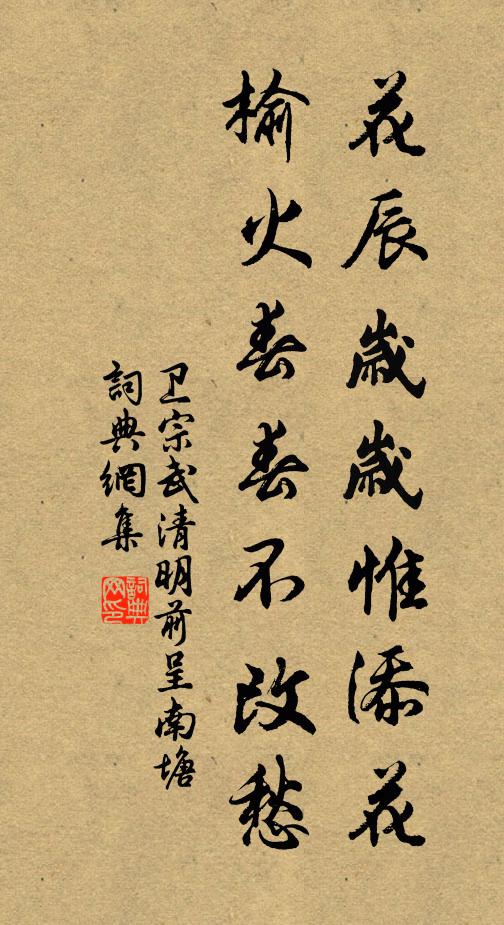 花辰歲歲惟添花
榆火春春不改愁
卫宗武清明前呈南塘
詞典網集
詞典
网印